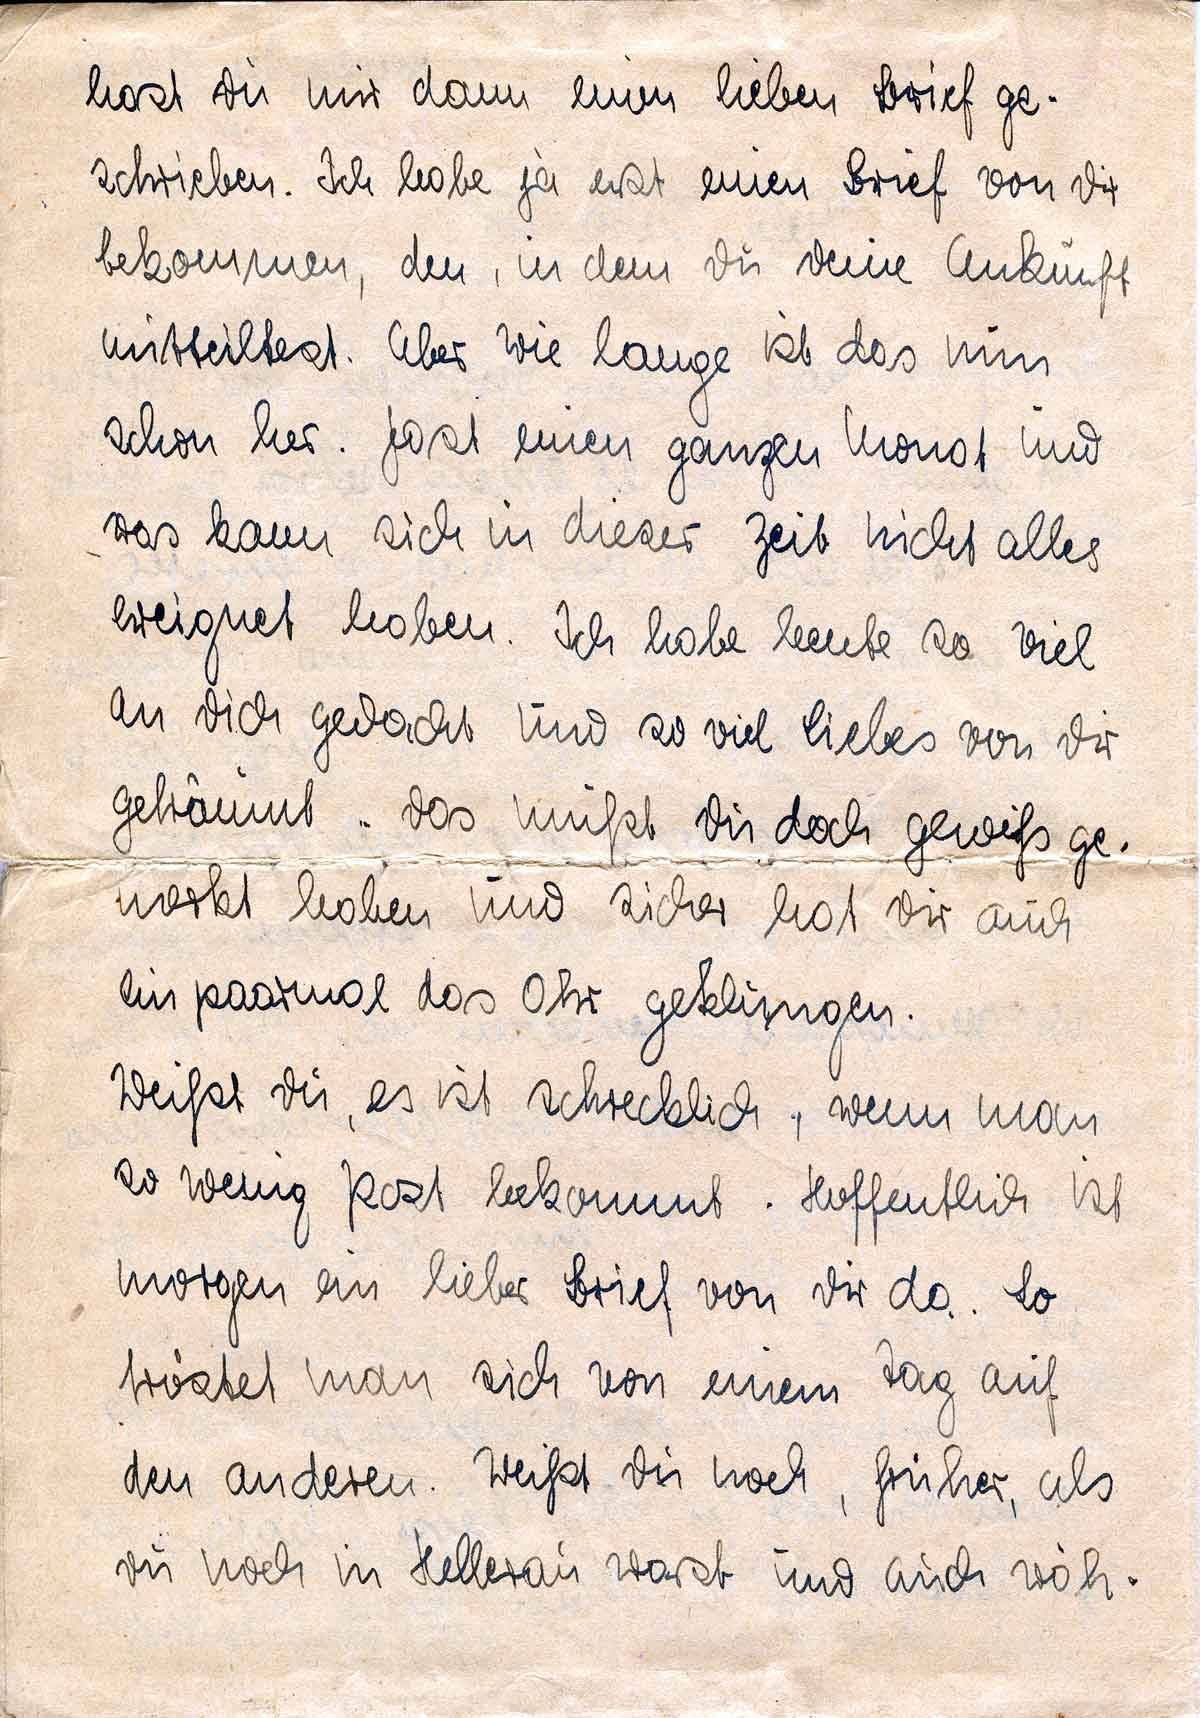 hast du mir dann einen lieben Brief ge-
schrieben. Ich habe ja erst einen Brief von dir
bekommen, den, in dem du deine Ankunft
mitteiltest. Aber wie lange ist das nun
schon her. Fast einen ganzen Monat und
was kann sich in dieser Zeit nicht alles
ereignet haben. Ich habe heute so viel
an dich gedacht und so viel liebes von dir
geträumt. Das mußt du doch gewiß ge-
merkt haben und sicher hat dir auch
ein paarmal das Ohr geklungen.
Weißt du, es ist schrecklich, wenn man
so wenig Post bekommt. Hoffentlich ist
morgen ein lieber Brief von dir da. So
tröstet man sich von einem Tag auf
den anderen. Weißt du noch, früher, als
du noch in Hellerau warst und auch wäh-